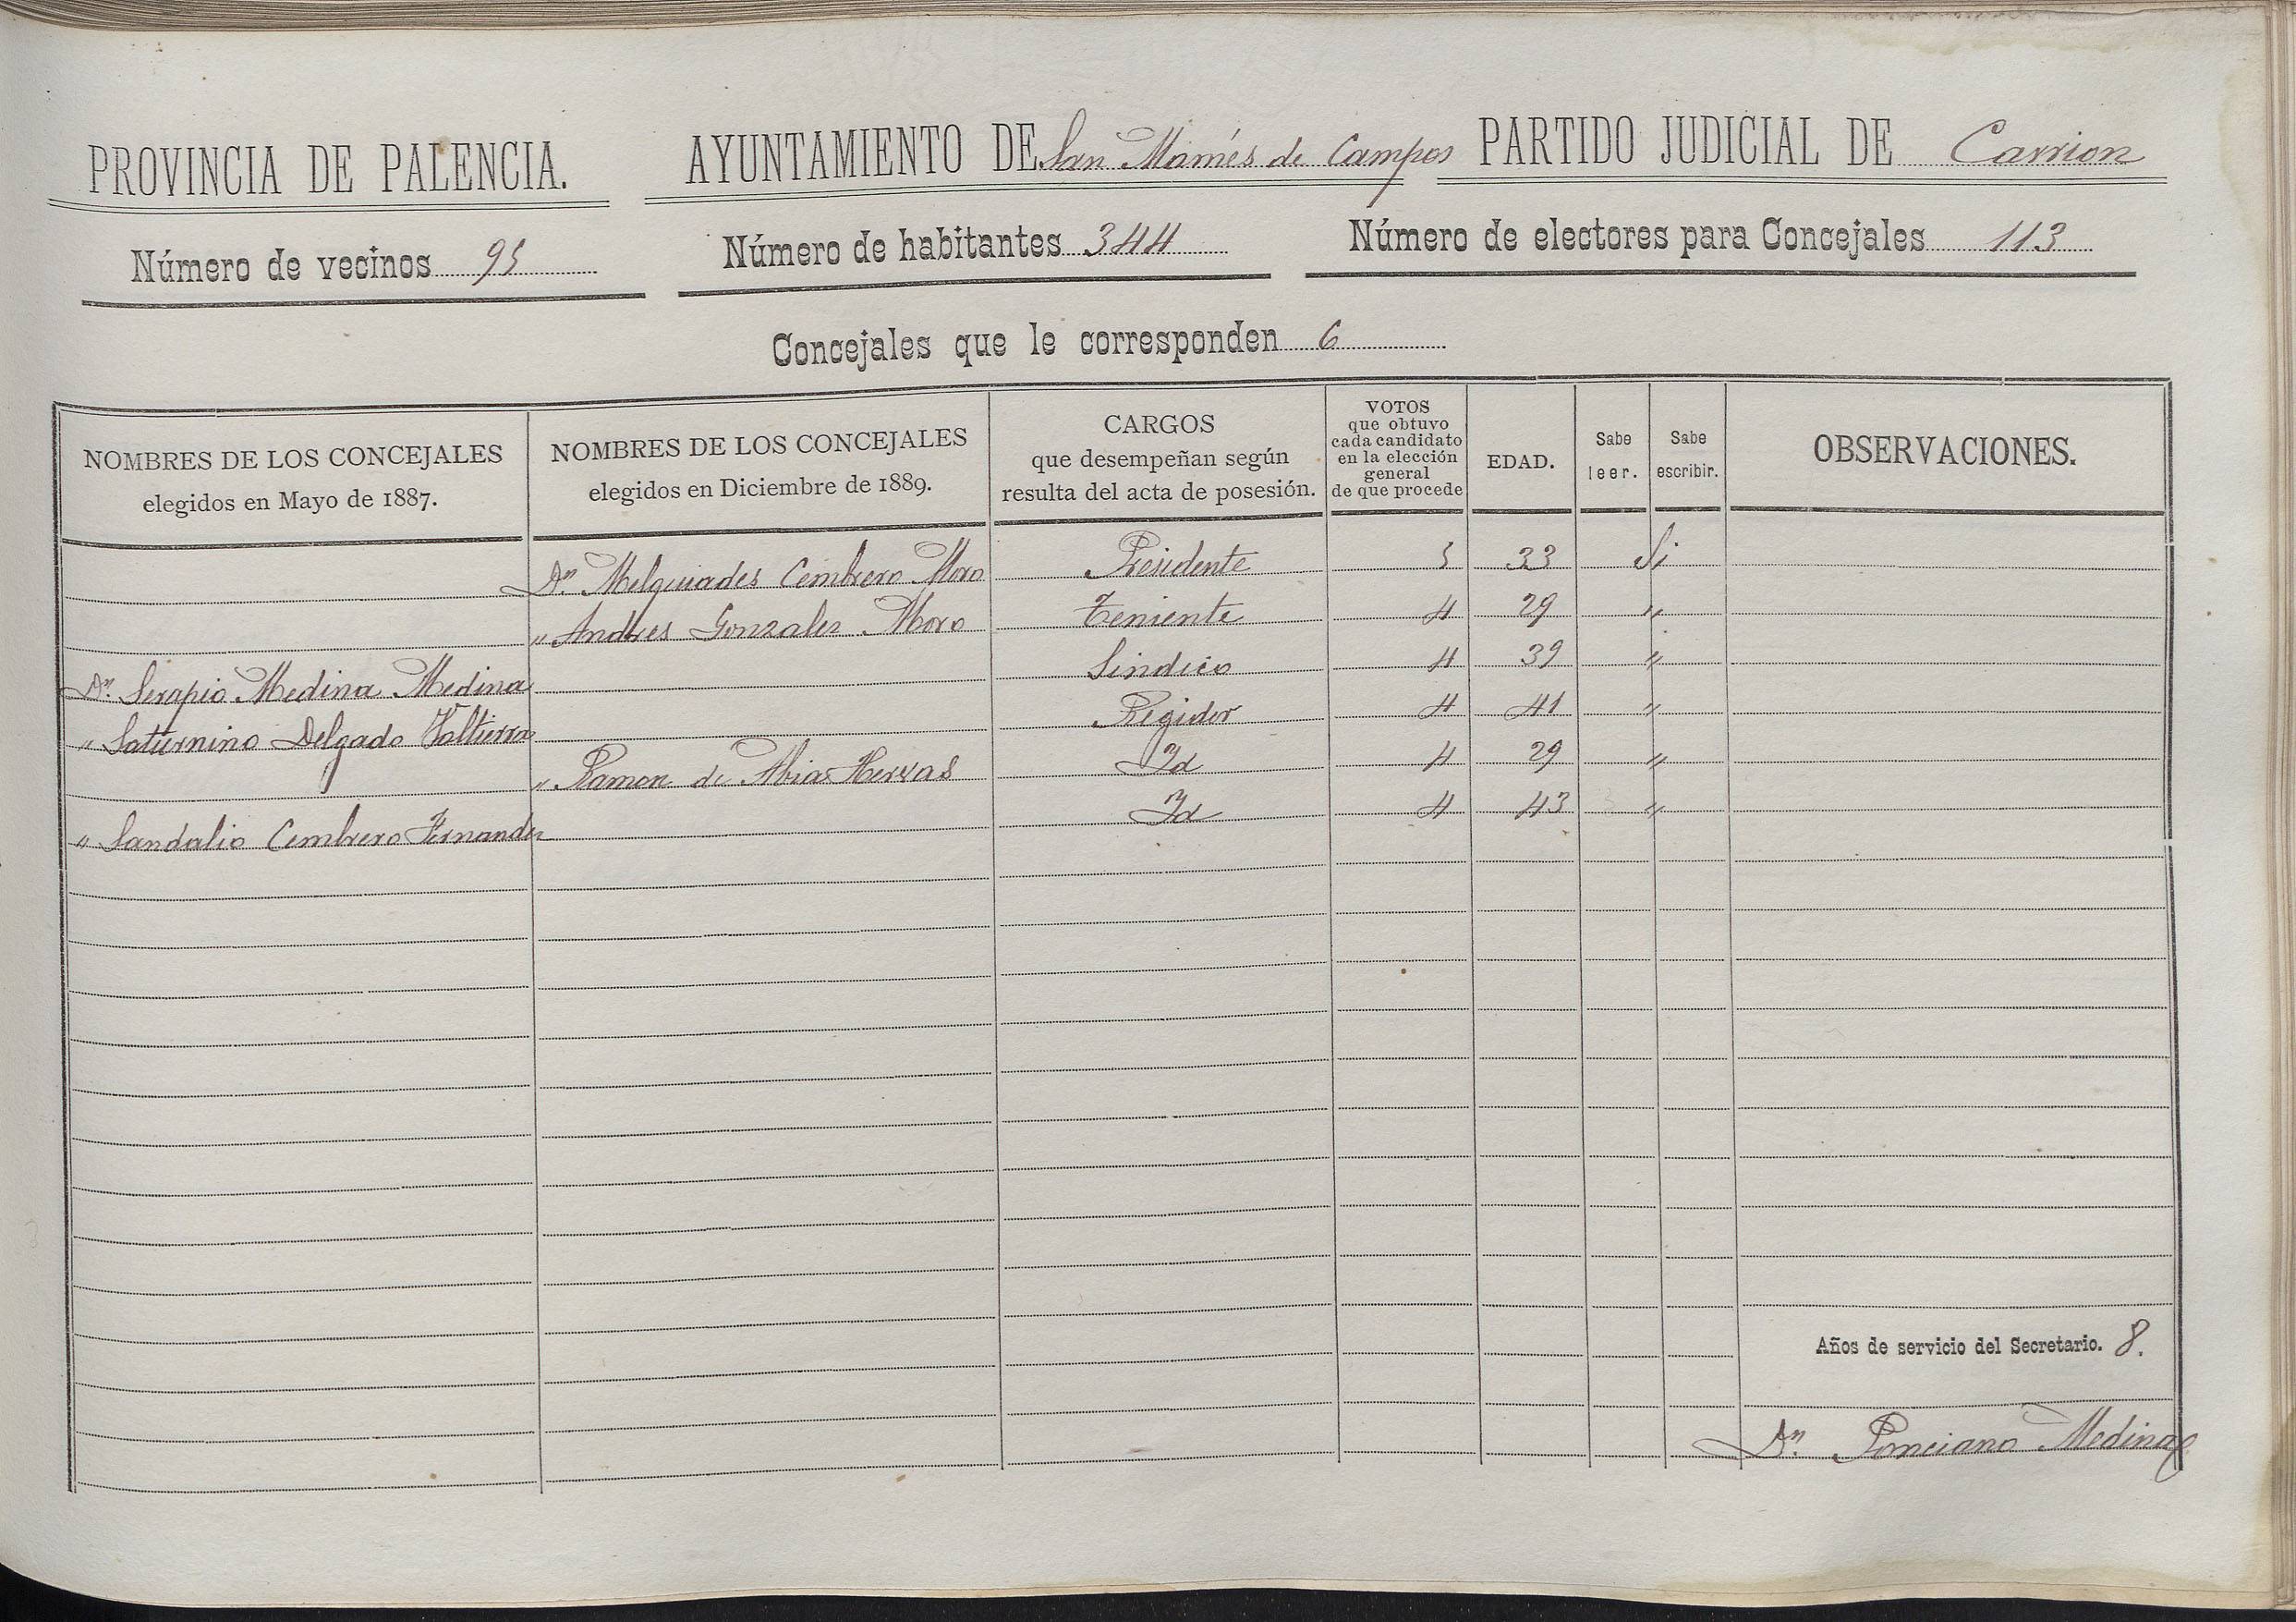 PROVINCIA DE PALENCIA. AYUNTAMIENTO DE San Mamés de Campos PARTIDO JUDICIAL DE Carrion
Número de vecinos 95 Número de habitantes 344 Número de electores para Concejales 113
Concejales que le corresponden 6
NOMBRES DE LOS CONCEJALES
elegidos en Mayo de 1887.
NOMBRES DE LOS CONCEJALES
elegidos en Diciembre de 1889.
CARGOS
que desempeñan según
resulta del acta de posesión.
VOTOS
que obtuvo
cada candidato
en la elección
general
de que procede
EDAD.
Sabe
leer.
Sabe
escribir.
OBSERVACIONES.
Dn. Melquiades Cembrero Moro Presidente 5 33 Si
" Andres Gonzalez Moro Teniente 4 29 "
Dn. Serapio Medina Medina Sindico 4 39 "
" Saturnino Delgado Valtierra Regidor 4 41 "
" Ramon de Abias Hervas Id 4 29 "
" Sandalio Cembrero Fernandez Id 4 43 "
Años de servicio del Secretario. 8.
Dn. Ponciano Medina